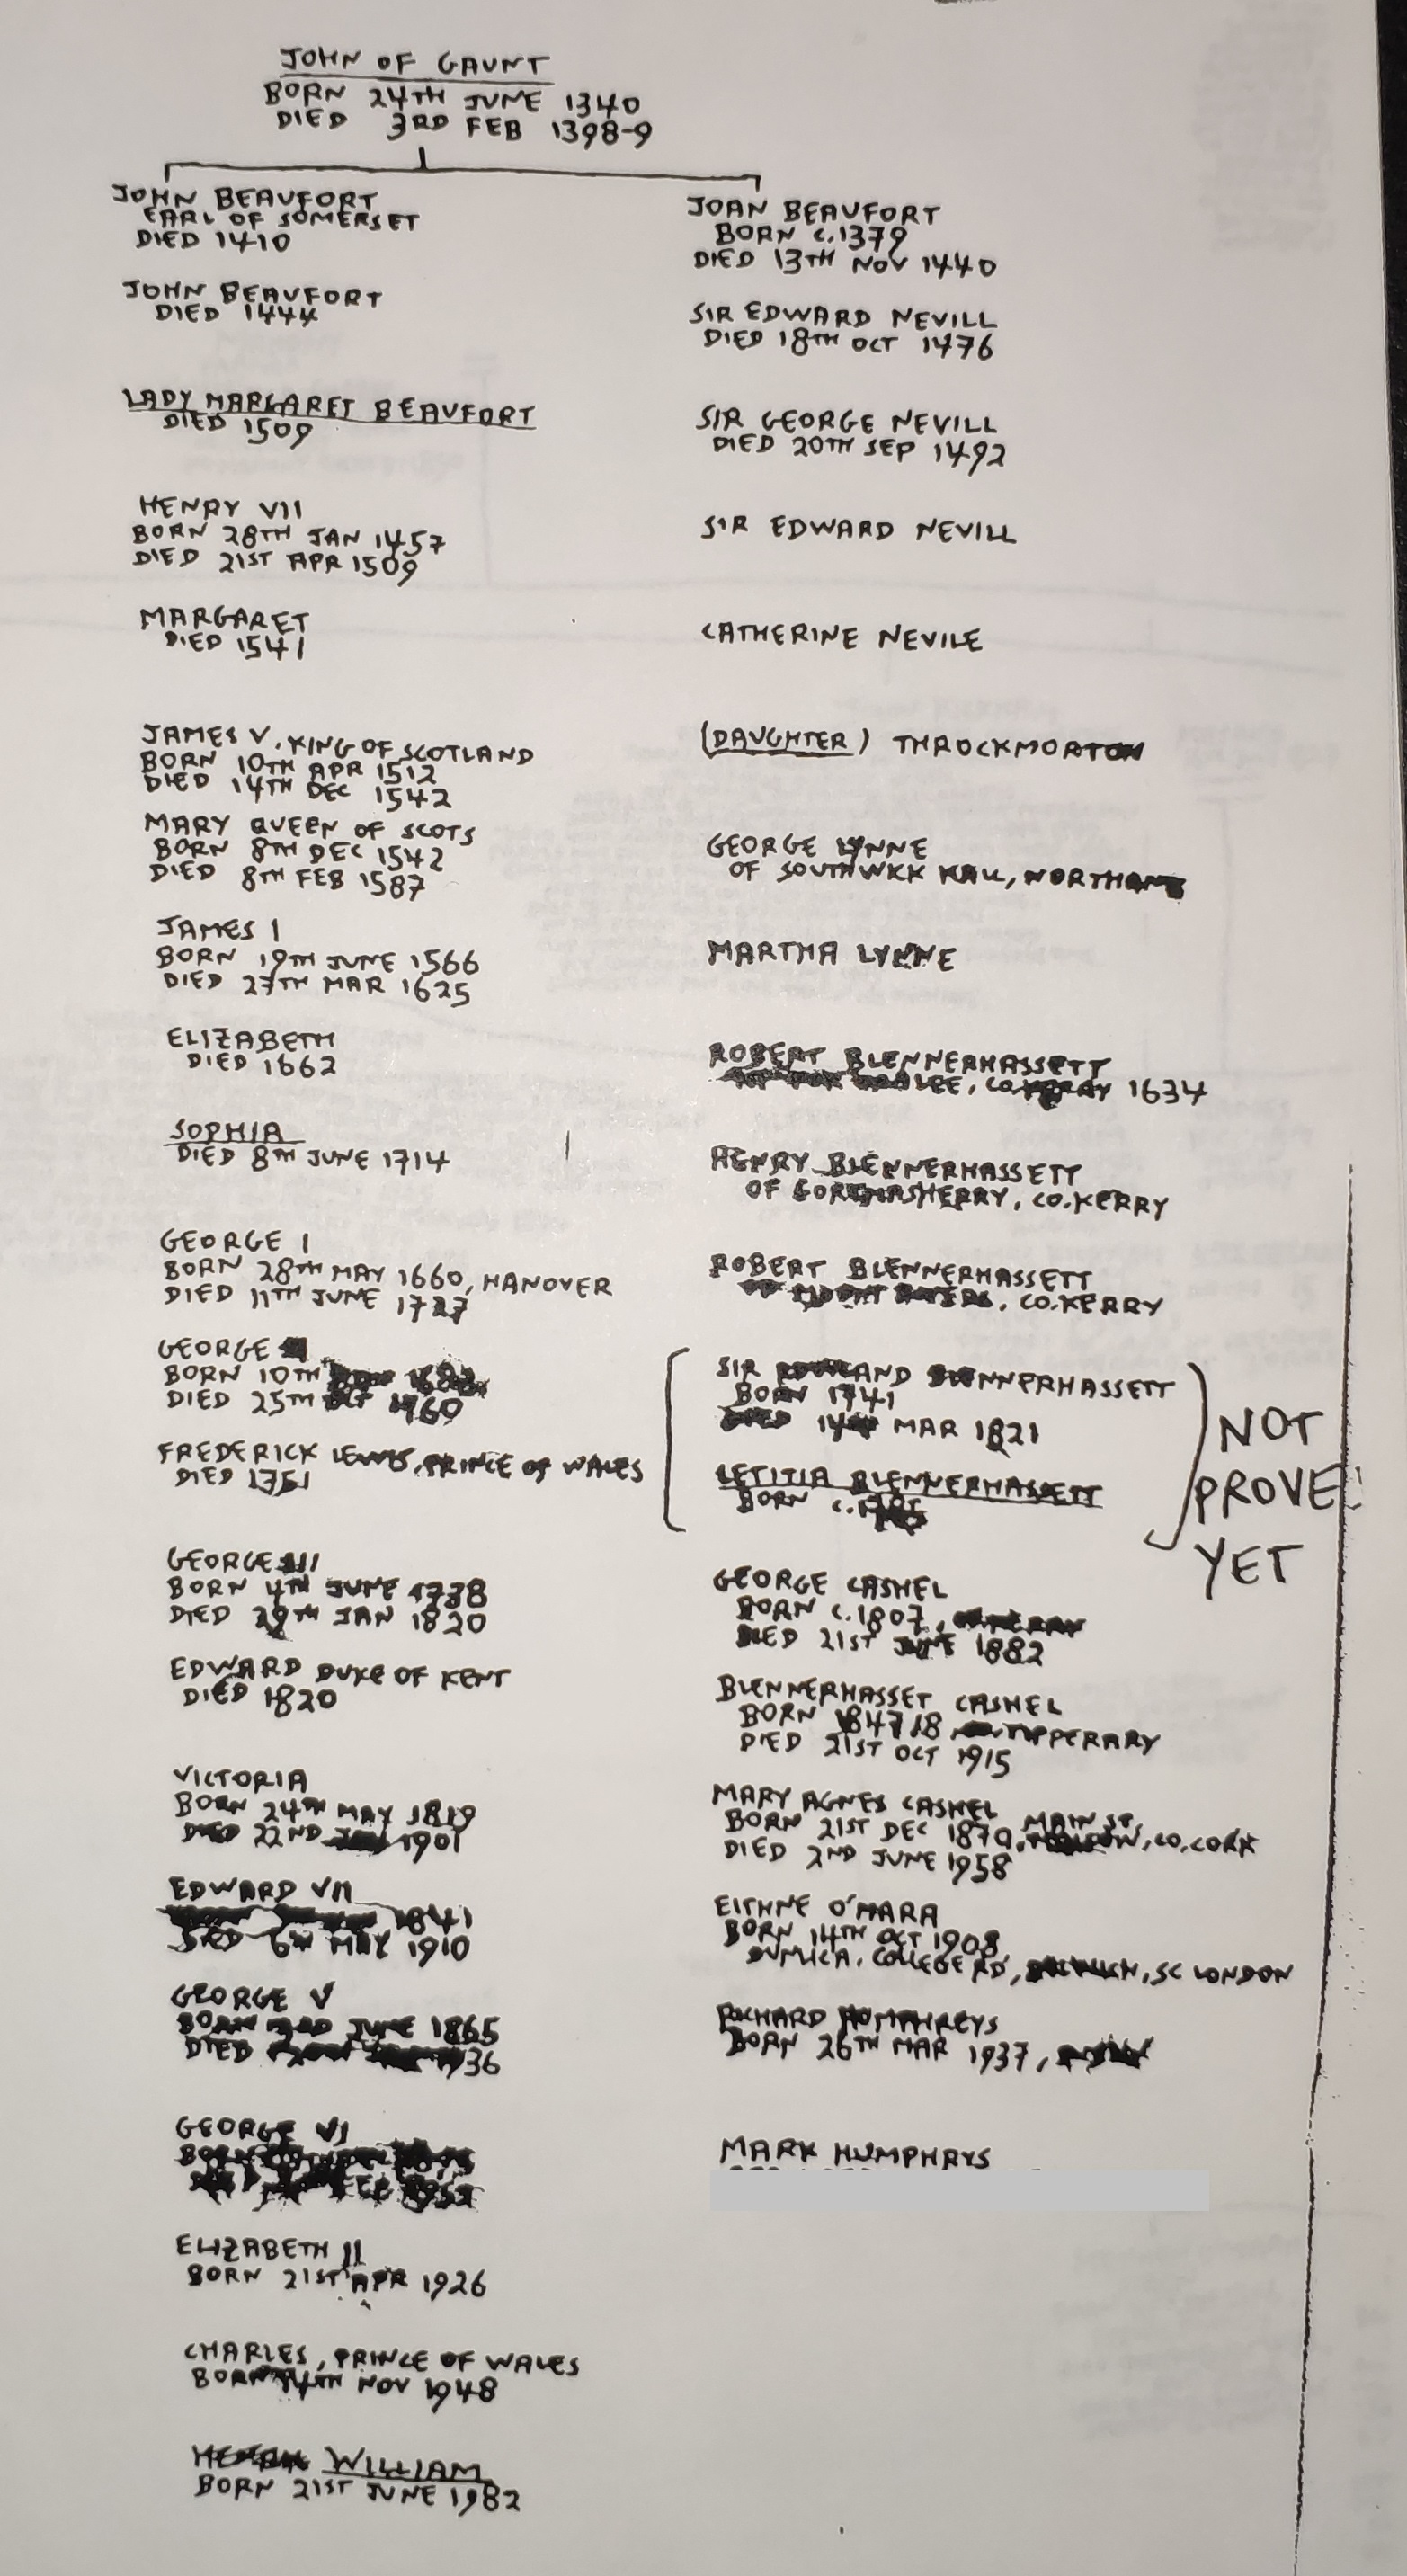 JOHN OF GAUNT
BORN 24TH JUNE 1340
DIED 3RD FEB 1398-9
JOHN BEAUFORT
EARL OF SOMERSET
DIED 1410
JOHN BEAUFORT
DIED 1444
LADY MARGARET BEAUFORT
DIED 1509
HENRY VII
BORN 28TH JAN 1457
DIED 21ST APR 1509
MARGARET
DIED 1541
JAMES V, KING OF SCOTLAND
BORN 10TH APR 1512
DIED 14TH DEC 1542
MARY QUEEN OF SCOTS
BORN 8TH DEC 1542
DIED 8TH FEB 1587
JAMES I
BORN 19TH JUNE 1566
DIED 27TH MAR 1625
ELIZABETH
DIED 1662
SOPHIA
DIED 8TH JUNE 1714
GEORGE I
BORN 28TH MAY 1660, HANOVER
DIED 11TH JUNE 1727
GEORGE
BORN 10TH
DIED 25TH OCT 1760
FREDERICK LEWIS, PRINCE OF WALES
DIED 1751
GEORGE III
BORN 4TH JUNE 1738
DIED 29TH JAN 1820
EDWARD DUKE OF KENT
DIED 1820
VICTORIA
BORN 24TH MAY 1819
DIED 22ND 1901
EDWARD VII
1841
DIED 6TH MAY 1910
GEORGE V
BORN 3RD JUNE 1865
DIED 1936
GEORGE VI
BORN
ELIZABETH II
BORN 21ST APR 1926
CHARLES, PRINCE OF WALES
BORN 14TH NOV 1948
WILLIAM
BORN 21ST JUNE 1982
JOAN BEAUFORT
BORN c.1379
DIED 13TH NOV 1440
SIR EDWARD NEVILL
DIED 18TH OCT 1476
SIR GEORGE NEVILL
DIED 20TH SEP 1492
SIR EDWARD NEVILL
CATHERINE NEVILE
(DAUGHTER) THROCKMORTON
GEORGE LYNNE
OF SOUTHWICK HALL, NORTHANTS
MARTHA LYNNE
ROBERT BLENNERHASSETT
CO. KERRY 1634
HENRY BLENNERHASSETT
OF CO. KERRY
ROBERT BLENNERHASSETT
CO. KERRY
SIR ROWLAND BLENNERHASSETT
BORN 1741
DIED 14TH MAR 1821
LETITIA BLENNERHASSETT
BORN
NOT
PROVE
YET
GEORGE CASHEL
BORN c.1807,
DIED 21ST JUNE 1882
BLENNERHASSET CASHEL
BORN 1847/8 TIPPERARY
DIED 21ST OCT 1915
MARY AGNES CASHEL
BORN 21ST DEC 1879, MAIN ST, CO. CORK
DIED 2ND JUNE 1958
EITHNE O'MARA
BORN 14TH OCT 1908
DUMICA, COLLEGE RD, SE LONDON
RICHARD HUMPHREYS
BORN 26TH MAR 1937,
MARK HUMPHRYS